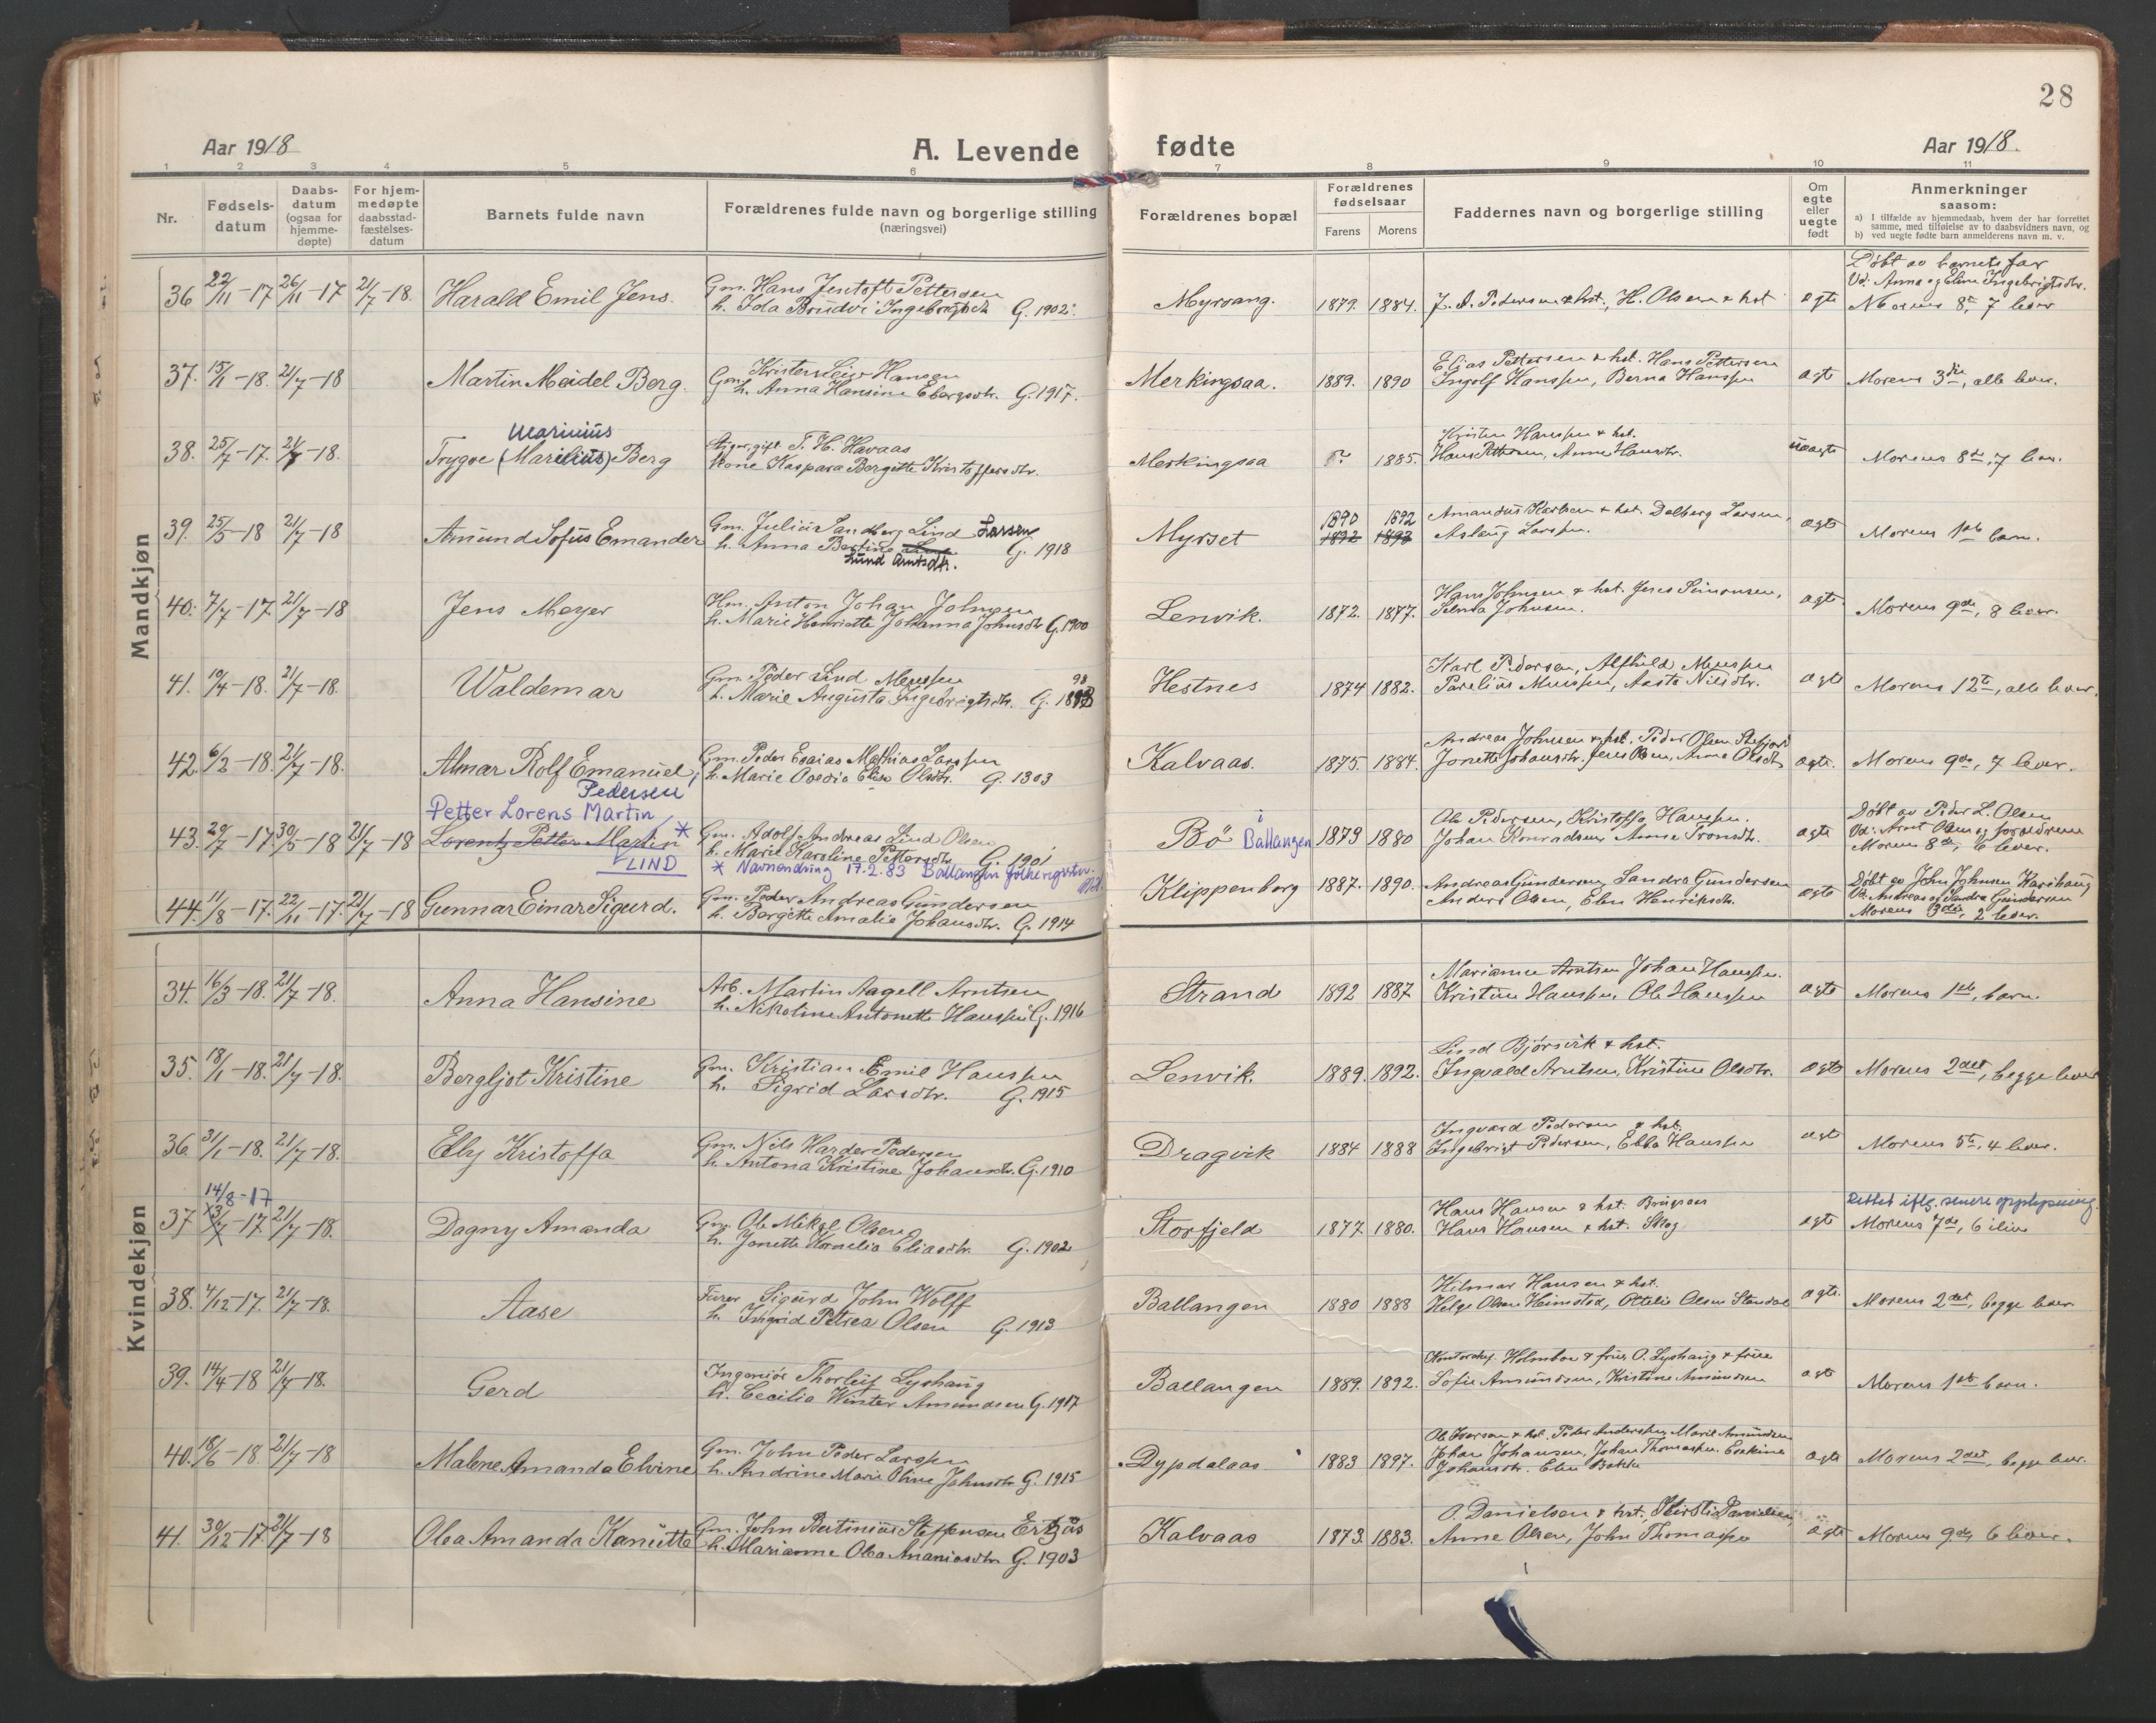 28
Aar 1918
A. Levende fødte
Aar 1918.
1 2 3 4 5 6 7 8 9 10 11
Nr.
Fødsels-
datum
Daabs-
datum
(ogsaa for
hjemme-
døpte)
For hjem-
medøpte
daabsstad-
fæstelses-
datum
Barnets fulde navn
Forældrenes fulde navn og borgerlige stilling
(næringsvei)
Forældrenes bopæl
Forældrenes
fødselsaar
Farens Morens
Faddernes navn og borgerlige stilling
Om
egte
eller
uegte
født
Anmerkninger
saasom:
a) I tilfælde av hjemmedaab, hvem der har forrettet
samme, med tilføielse av to daabsvidners navn, og
b) ved uegte fødte barn anmelderens navn m. v.
Mandkjøn
36 22/11-17 26/11-17 21/7-18. Harald Emil Jens.
Gm. Hans Jentoft Pettersen
h. Ida Brudvi Ingebrigtsdtr G. 1902.
Myrvang. 1879. 1884. J. A. Pedersen & hst., H. Olsen & hst egte
Døbt av barnets far
Vd. Anna og Eline Ingebrigtsdtr.
Morens 8de, 7 lever
37. 15/1-18. 21/7-18 Martin Meidel Berg.
Gm. Kristen Leiv Hansen
h. Anna Hansine Ebergsdtr. G. 1917.
Merkingsaa. 1889. 1890
Elias Pettersen & hst. Hans Pettersen
Ingolf Hanssen, Berna Hanssen
egte Morens 3die, alle lever.
38. 25/7-17. 21/7-18. Marinius
Trygve (Marelius) Berg
gift T. H. Havaas
Kone Kaspara Bergitte Kristoffersdtr.
Merkingsaa ? 1885.
Kristen Hanssen & hst.
Hans Pettersen, Anne Hansdtr.
uegte Morens 8de, 7 lev.
39. 25/5-18 21/7-18 Amund Sofus Emander
Gm. Julius Sandberg Lind Larsen
h. Anna Bertine G. 1918
Lund Arntsdtr.
Myrset 1890 1892
1892 1893
Amandus Karlsen & hst. Dalberg Larsen,
Aslaug Larsen.
egte Morens 1ste barn.
40. 7/7-17. 21/7-18 Jens Meyer
Hm. Anton Johan Johnsen
h. Marie Henriette Johanna Johnsdtr G. 1900
Lenvik. 1872. 1877.
Hans Johnsen & hst. Jens Simonsen,
Selma Johnsen.
egte. Morens 9de, 8 lever.
41. 10/4-18. 21/7-18. Waldemar
Gm. Peder Lind Menssen 98
h. Marie Augusta Ingebrigtsdtr. G. 1898
Hestnes 1874 1882.
Karl Pedersen, Alfhild Menssen
Parelius Menssen, Aasta Nilsdtr.
egte Morens 12te, alle lever.
42. 6/2-18. 21/7-18. Almar Rolf Emanuel,
Pedersen
Gm. Peder Esaias Mathias Larssen
h. Marie Ovedia Elise Olsdtr. G. 1903
Kalvaas. 1875. 1884.
Andreas Johnsen & hst. Peder Olsen Stefjord
Jonette Johansdtr. Jens Olsen, Anna Olsdtr
egte. Morens 9de, 7 lever.
Petter Lorens Martin,
43. 29/7-17. 30/5-18 21/7-18 Lorentz Petter Martin *
LIND
Gm. Adolf Andreas Lind Olsen
h. Marie Karoline Pettersdtr. G. 1901
* Navnendring 17.2.83 Ballangen folkeregister.
Bö i Ballangen 1879 1880
Ole Pedersen, Kristoffa Hanssen.
Johan Konradsen, Anne Tronsdtr.
egte Døbt av Peder L. Olsen
Vd: Arnt Olsen og foreldrene
Morens 8de, 6 lever.
44. 11/8-17. 22/11-17. 21/7-18 Gunnar Einar Sigurd.
Gm. Peder Andreas Gundersen
h. Bergitte Amalie Johansdtr. G. 1914
Klippenborg 1887. 1890.
Andreas Gundersen, Sandra Gundersen
Anders Olsen, Elen Henriksdtr.
egte Døbt av John Johnsen Karihaug
Vd: Andreas og Sandra Gundersen
Morens 3die, 2 lever.
Kvindekjøn
34. 16/3-18. 21/7-18. Anna Hansine
Arb. Martin Aagell Arntsen
h. Nikoline Antonette Hanssen G. 1916
Strand 1892 1887
Marianne Arntsen Johan Hanssen.
Kristine Hanssen, Ole Hanssen
egte Morens 1ste, barn.
35. 18/1-18. 21/7-18. Bergljot Kristine
Gm. Kristian Emil Hanssen
h. Sigrid Larsdtr. G. 1915
Lenvik. 1889. 1892.
Lind Bjørsvik & hst.
Ingvald Arntsen, Kristine Olsdtr.
egte Morens 2det, begge lever
36. 31/1-18. 21/7-18. Elly Kristoffa
Gm. Nils Harder Pedersen
h. Antona Kristine Johansdtr. G. 1910
Dragvik 1884 1888
Ingvard Pedersen & hst.
Ingebrigt Pedersen, Ebba Hanssen
egte Morens 5te, 4 lever.
14/8-17
37 13/7-17. 21/7-18. Dagny Amanda
Gm. Ole Mikal Olsen
h. Jonette Kornelia Eliasdtr. G. 1902
Storfjeld 1877. 1880.
Hans Hansen & hst. Brugsaas
Hans Hansen & hst. Skog
egte Rettet iflg. senere opplysning.
Morens 7de, 6 i live
38. 4/12-17. 21/7-18. Aase
Furer Sigurd John Wolff
h. Ingrid Petrea Olsen G. 1913
Ballangen 1880 1888
Hilmar Hansen & hst.
Helge Olsen Heimstad, Ottelie Olsen Stendal
egte. Morens 2det, begge lever.
39. 14/4-18 21/7-18. Gerd
Ingeniør Thorleif Lyshaug
h. Cecilia Winter Amundsen G. 1917
Ballangen 1889. 1892.
Kontorchef. Holmboe & frue, O. Lyshaug & frue
Sofie Amundsen, Kristine Amundsen
egte Morens 1ste barn.
40. 18/6-18 21/7-18 Malene Amanda Elvine
Gm. John Peder Larssen
h. Andrine Marie Oline Johnsdtr G. 1915
Dypdalaas 1883 1897.
Ole Iversen & hst. Peder Anderssen, Marit Amundsen
Johan Johansen, Johan Thomassen.
Johansdtr. Elen Bakke
egte Morens 2det, begge lever.
41. 30/12-17. 21/7-18 Olea Amanda Kanutte
Gm. John Bertinius Steffensen
h. Marianne Olea Ananiasdtr G. 1903
Kalvaas 1873. 1883.
O. Danielsen & hst, Kirsti Danielsen,
Anne Olsen, John Thomassen
egte Morens 9de, 6 lever.